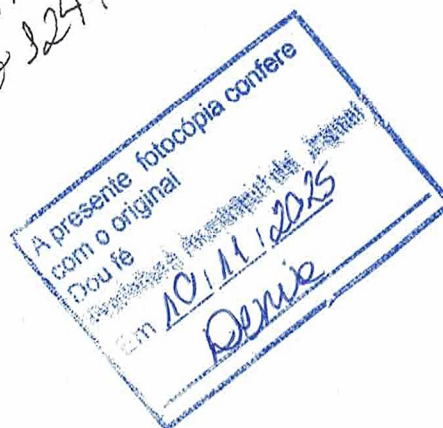 3297
A presente fotocópia confere
com o original
Dou fé
Em 10/11/2025
Denise